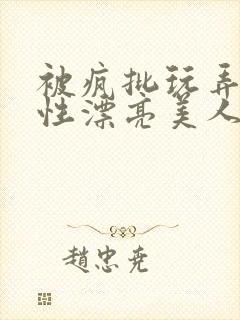 被疯批玩弄
性漂亮美人
趙忠尭